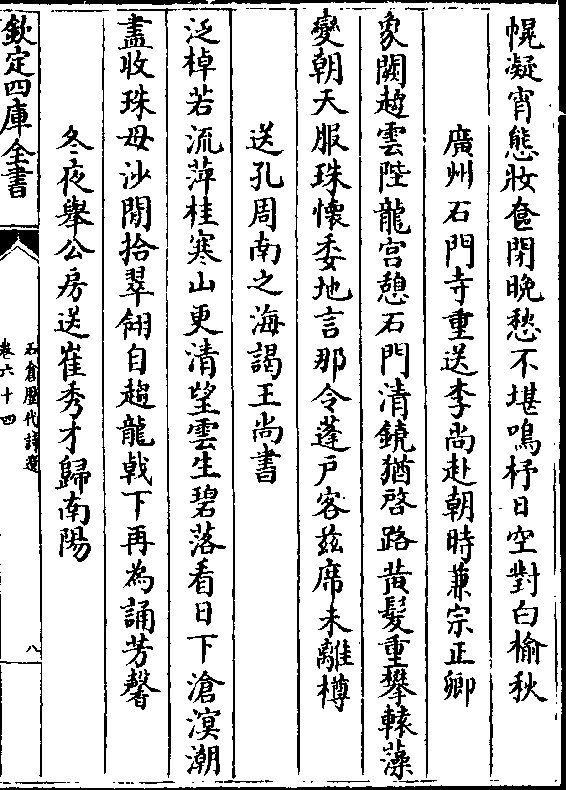 幌凝宵態妝奩閉晚愁不堪鳴杼日空對白榆秋
廣州石門寺重送李尚赴朝時兼宗正卿
象闕趨雲陛龍宫憩石門清鐃猶啓路黄髮重攀轅藻
變朝天服珠懷委地言那令蓬戸客兹席未離樽
送孔周南之海謁王尚書
泛棹若流萍桂寒山更清望雲生碧落看日下滄溟潮
盡收珠母沙閒拾翠翎自趨龍戟下再為誦芳馨
冬夜舉公房送崔秀才歸南陽
欽定四庫全書
石倉歷代詩選
卷六十四
八